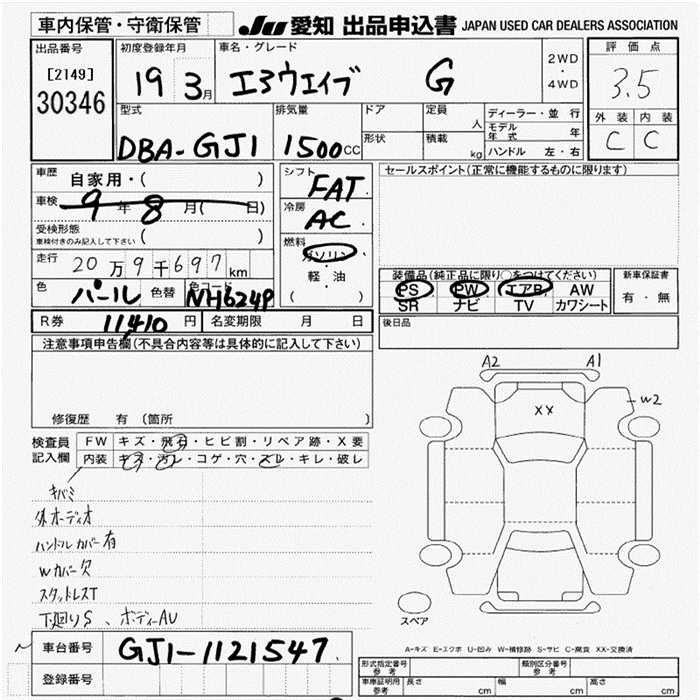 車内保管・守衛保管
JU 愛知 出品申込書 JAPAN USED CAR DEALERS ASSOCIATION
出品番号
[2149]
30346
初度登録年月
19 3月
車名・グレード
エアウェイブ G
2WD
・
4WD
評価点
3.5
外装 内装
C C
型式
DBA-GJ1
排気量
1500cc
ドア
形状
定員
人
積載
kg
ディーラー・並行
モデル年式 年
ハンドル 左・右
車歴 自家用・( )
車検 9年8月( 日)
受検形態
車検付きのみ記入して下さい ( )
走行 20万9千697km
色 パール 色替 色コード NH624P
R券 11410円 名変期限 月 日
シフト
FAT
冷房
AC
燃料
ガソリン
・
軽油
( )
セールスポイント(正常に機能するものに限ります)
装備品(純正品に限り○をつけてください)
PS PW エアB AW
SR ナビ TV カワシート
新車保証書
有・無
後日品
注意事項申告欄(不具合内容等は具体的に記入して下さい)
修復歴 有 (箇所
検査員記入欄
FW キズ・飛石・ヒビ割・リペア跡・X要
内装 キズ・汚レ・コゲ・穴・スレ・キレ・破レ
キバミ
外オーディオ
ハンドルカバー有
Wカバー欠
スタットレスT
下廻りS、ボディーAU
A2 A1
XX
W2
スペア
A-キズ E-エクボ U-凹み W-補修跡 S-サビ C-腐食 XX-交換済
車台番号 GJ1-1121547
登録番号
形式指定番号
参考
類別区分番号
参考
車庫証明用
参考
長さ cm 幅 cm 高さ cm